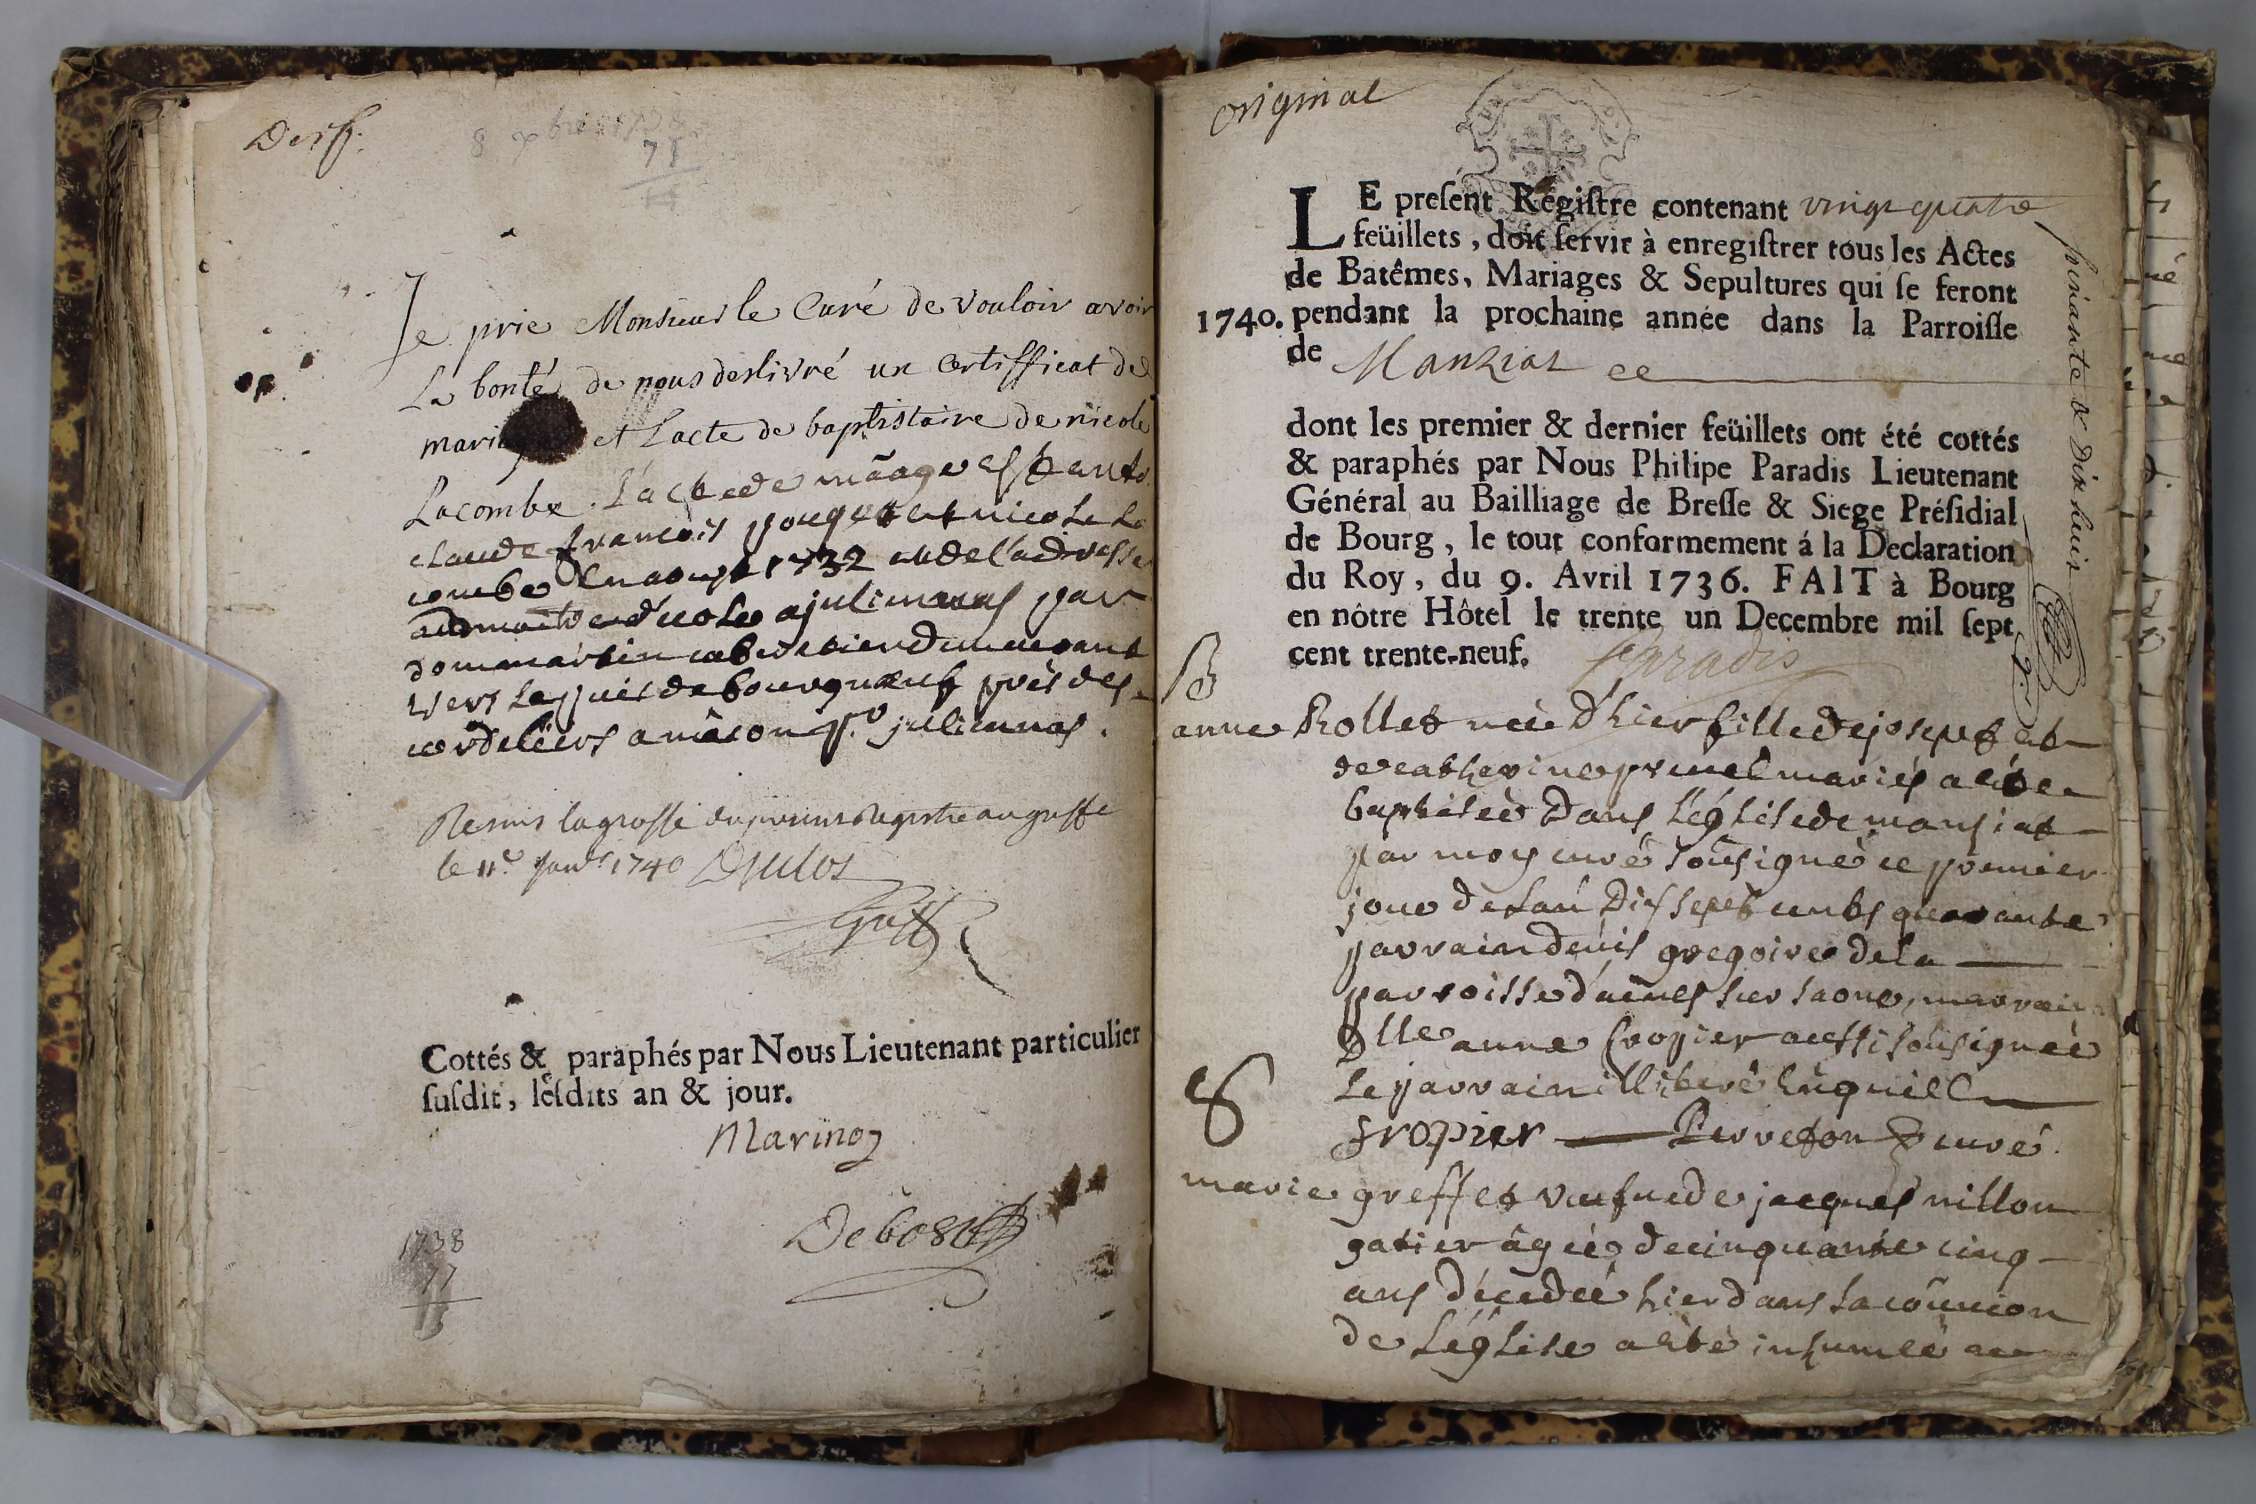 Je prie Monsieur le Curé de vouloir avoir
La bonté de nous deslivré un Certifficat de
et Lacte de baptistaire de nicole
Lacombe. L'acte de est
claude francois et nicole La
combe 1732 et de l'adresse
a julienas par
vers le puis de bourgneuf près des
cordeliers a mâcon pr. julienas.
Remis la grosse du present Registre au greffe
le 11e. Janr. 1740
Cottés & paraphés par Nous Lieutenant particulier
ſuſdit, leſdits an & jour.
1738
original
LE preſent Regiſtre contenant vingt quatre
feüillets, doit ſervir à enregiſtrer tous les Actes
de Batêmes, Mariages & Sepultures qui ſe feront
1740. pendant la prochaine année dans la Parroiſſe
de Manziat
dont les premier & dernier feüillets ont été cottés
& paraphés par Nous Philipe Paradis Lieutenant
Général au Bailliage de Breſſe & Siege Préſidial
de Bourg, le tout conformement á la Declaration
du Roy, du 9. Avril 1736. FAIT à Bourg
en nôtre Hôtel le trente un Decembre mil ſept
cent trente-neuf. Paradis
soixante & Dix huit
B
anne Rollet née d'hier fille de joseph et
de catherine mariés a été
baptisée Dans L'église de mansiat
par moy curé soûsigné ce premier
jour de L'an Dix sept cents quarante
parrain denis gregoire de la
parroisse d'aines sur saone, marraine
Dlle anne fropier aussi soûsignée
Le parrain illiteré enquis
fropier Perreton curé
S
marie greffet veufue de jacques nillon
gatier âgée de cinquante cinq
ans décedée hier dans la cõmunion
de L'église a été inhumée au